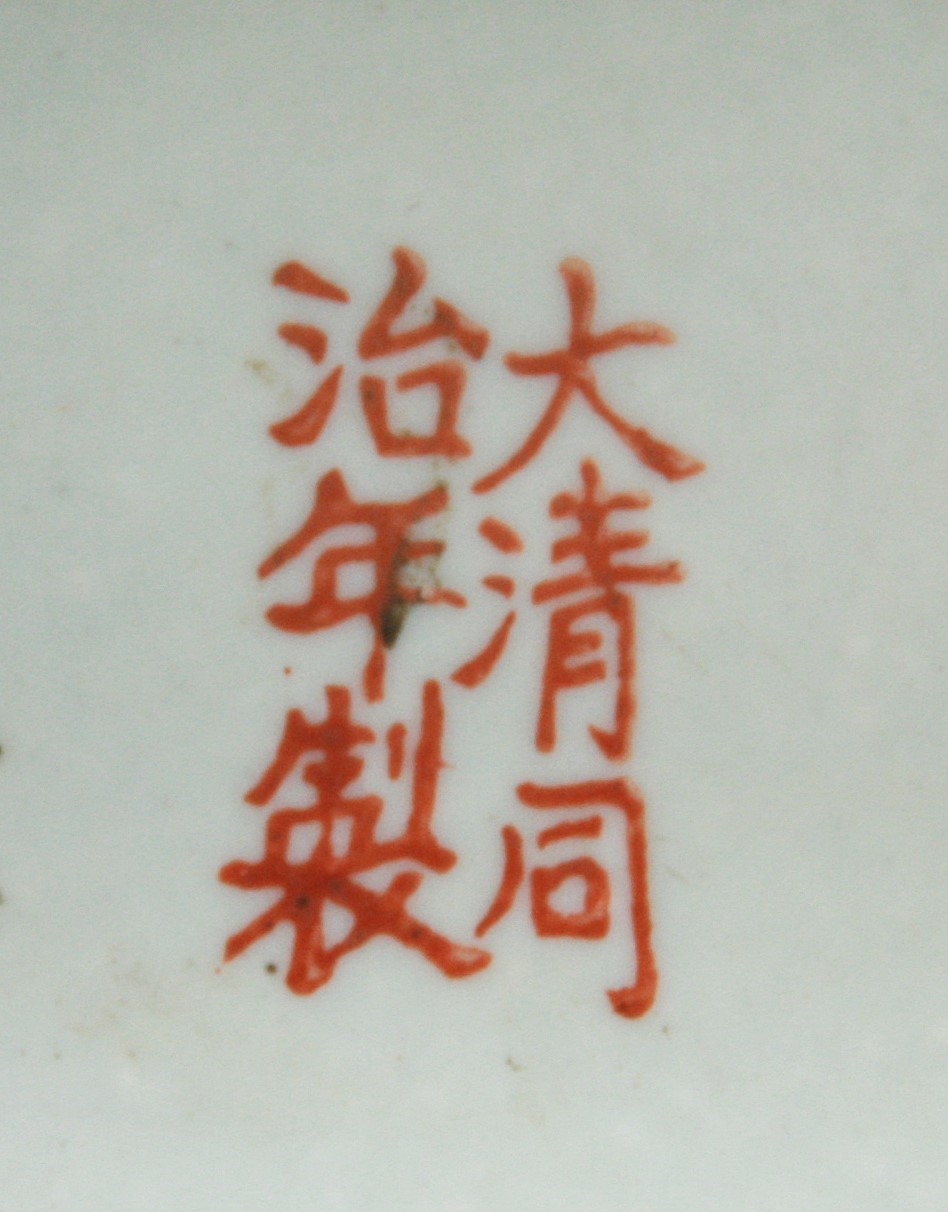 大清同
治年製